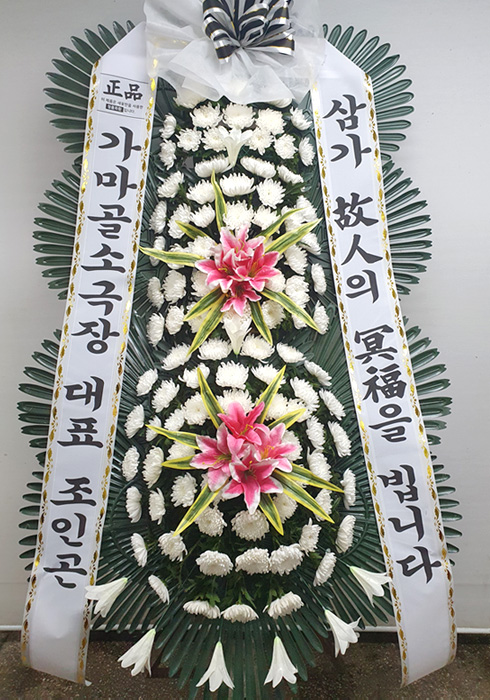 正品
가마골소극장 대표 조인곤
삼가 故人의 冥福을 빕니다